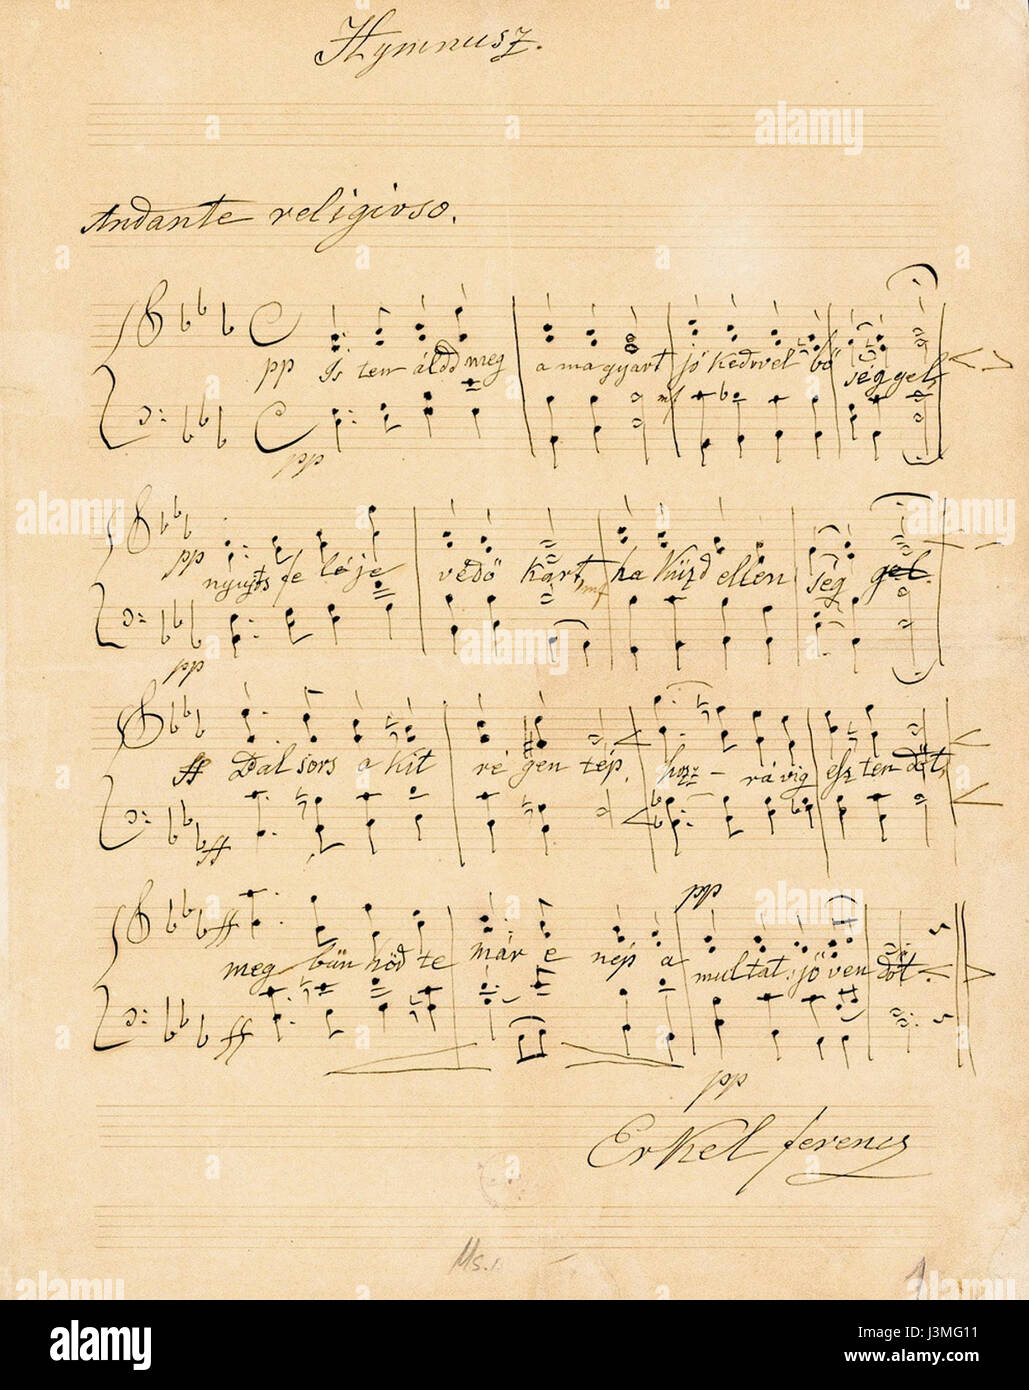 Hymnusz.
Andante religioso.
pp Is ten áldd meg a magyart jó kedvvel bő séggel,
mf
pp
pp nyujts fe léje védő kart, mf ha küzd ellen ség gel.
pp
ff Bal sors a kit ré gen tép, hozz - rá víg esz ten dőt,
ff
pp
ff meg bűn hőd te már e nép a multat s jöven dőt.
ff
pp
Erkel ferencz
Ms.
1
alamy stock photo
alamy
Image ID: J3MG11
www.alamy.com